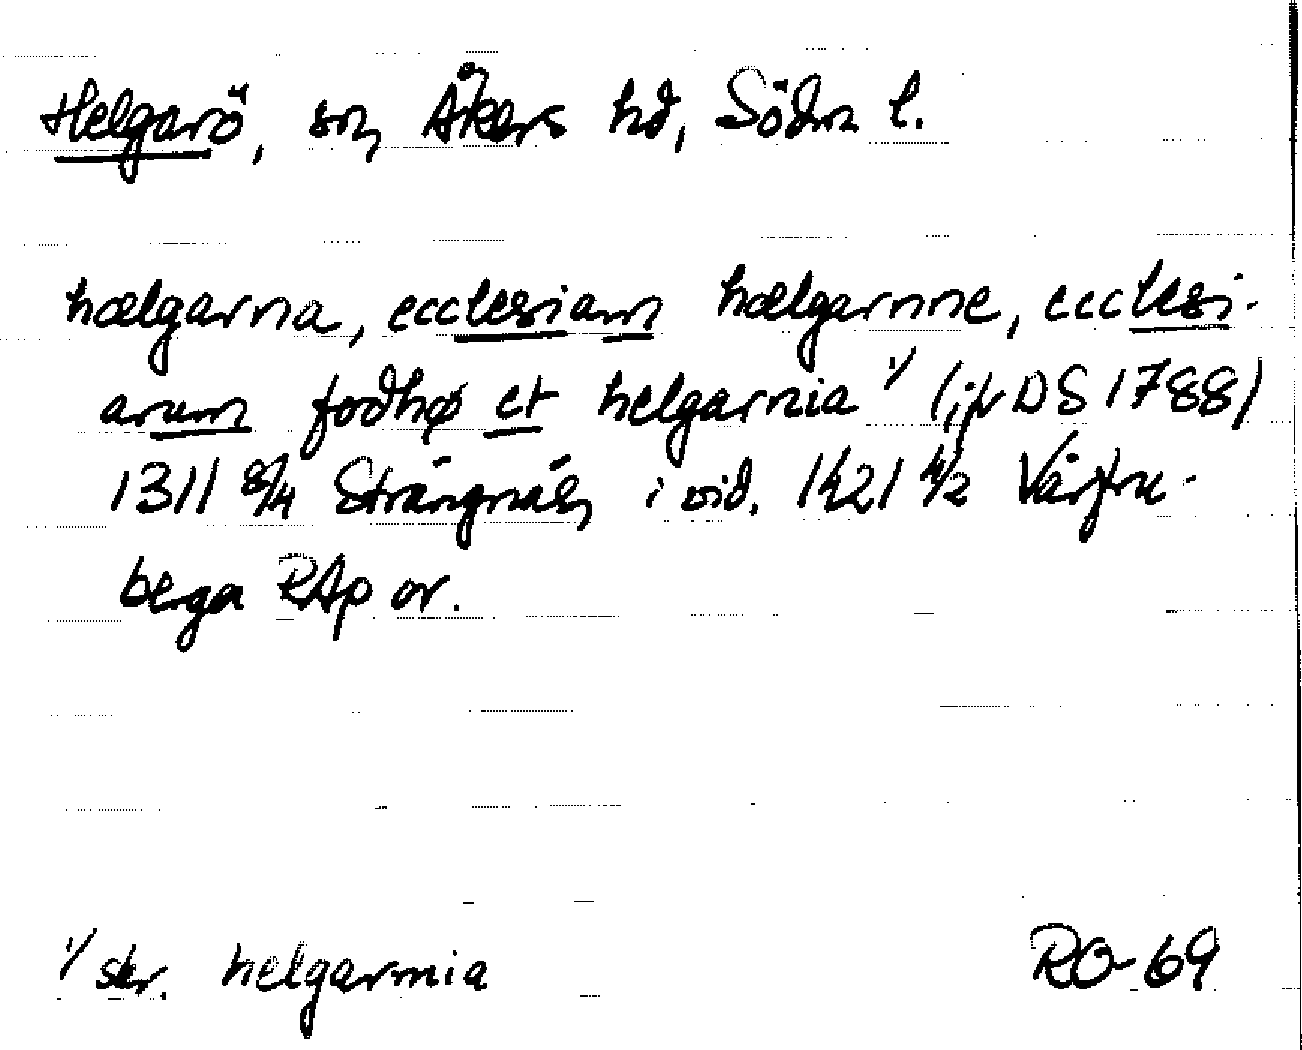 Helgarö, sn, Åkers hd, Södm l.
hælgarna, ecclesiam hælgarnne, ecclesi-
arum fodhø et helgarnia 1/ (jfr DS 1788)
1311 8/4 Strängnäs, i vid. 1421 4/2 Vårfru-
berga RAp or.
1/ skr. helgarmia
RO-69